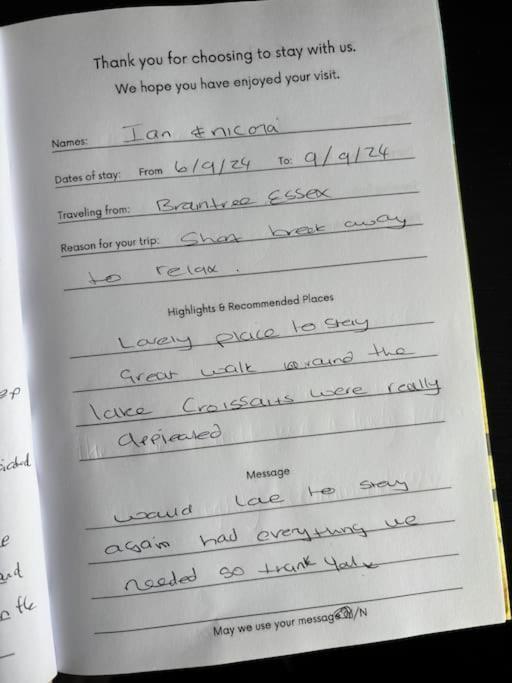 Thank you for choosing to stay with us.
We hope you have enjoyed your visit.
Names: Ian & nicola
Dates of stay: From 6/9/24 To: 9/9/24
Traveling from: Braintree Essex
Reason for your trip: Short break away
to relax.
Highlights & Recommended Places
Lovely place to stay
Great walk around the
lake Croissants were really
appreciated
Message
would love to stay
again had everything we
needed so thank you x
May we use your message Y/N